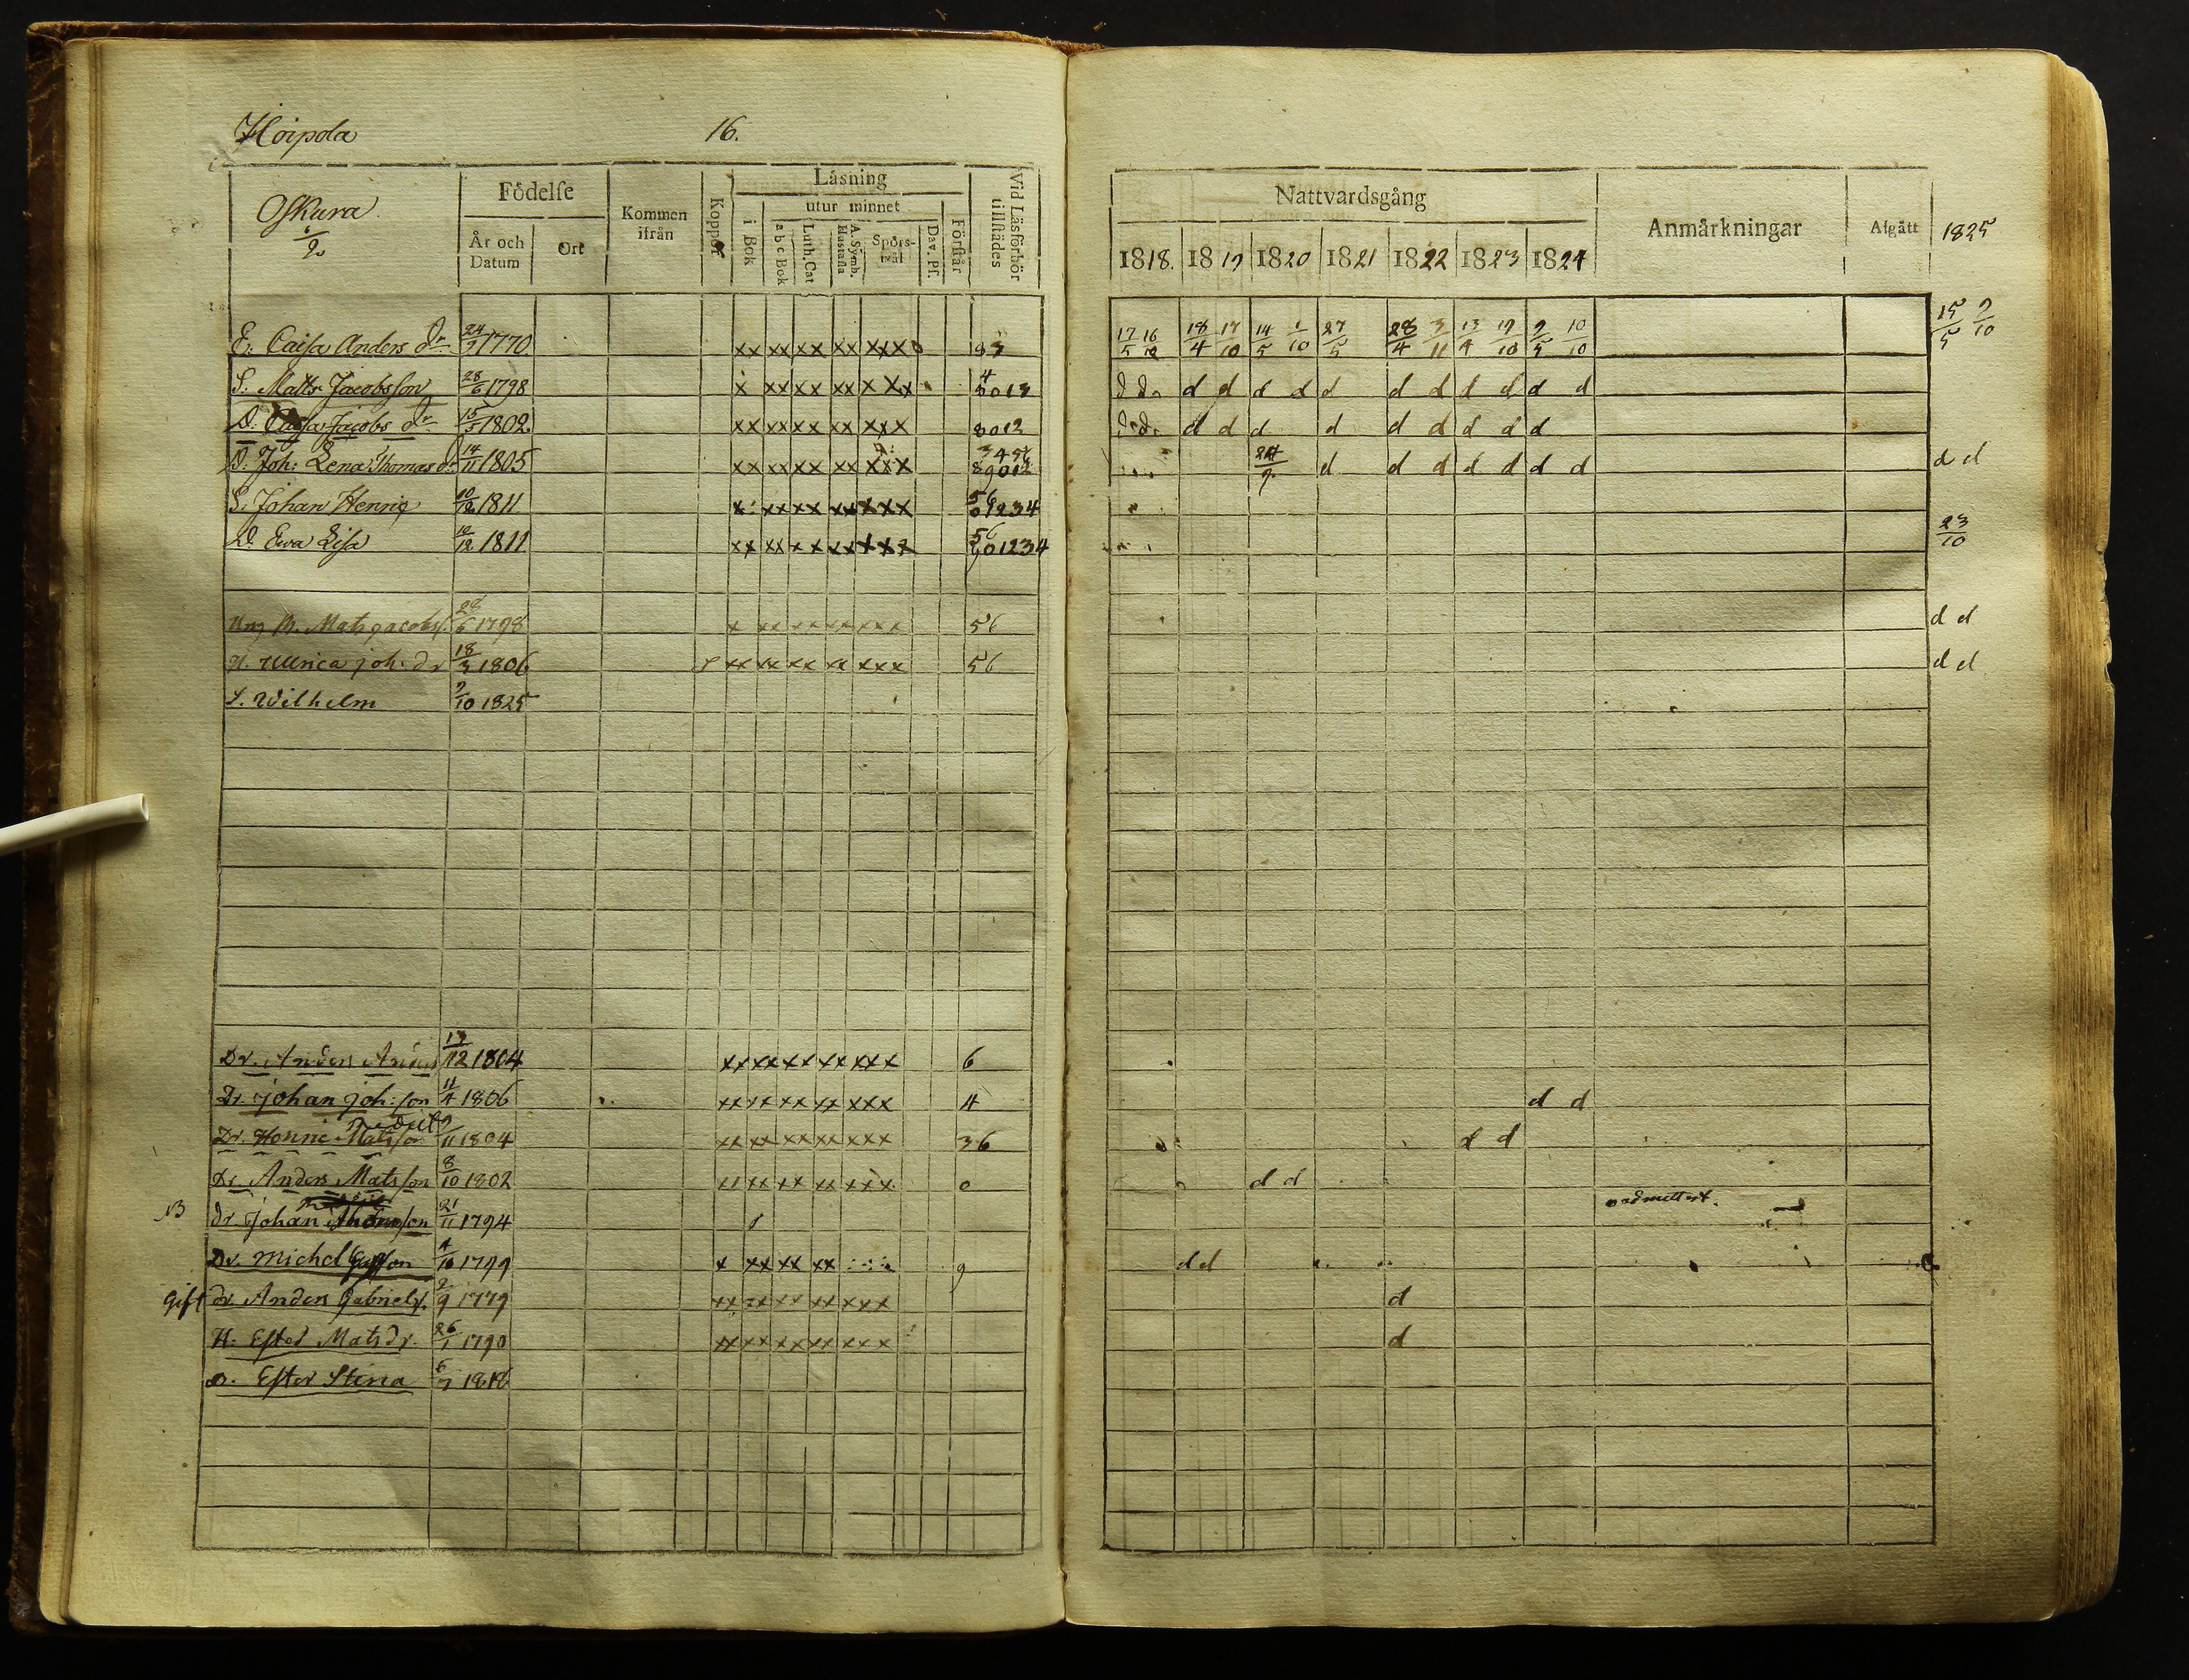 Höipola 16.
Oskura ½
Födelse
År och Datum
Ort
Kommen ifrån
Koppor
Läsning
i Bok
utur minnet
a b c Bok
Luth. Cat
A. Symb. Hustafla
Spörsmål
Dav. Ps.
Förstår
Vid Läsförhör tillstädes
Nattvardsgång
1818. 1819 1820 1821 1822 1823 1824
Anmärkningar
Afgått
1825
E: Caisa Anders dr 24/7 1770 xx xx xx xx xxx 83 17/5 16/10 18/4 17/10 14/5 1/10 27/5 28/4 3/11 13/4 19/10 9/5 10/10 15/5 9/10
S: Matts Jacobsson 28/6 1798 x xx xx xx xxx 4 8013 d d d d d d d d d d d d d
D: Caisa Jacobs dr 15/5 1802 xx xx xx xx xxx 8012 d d d d d d d d d d d
D. Joh: Lena Thomas dr 14/11 1805 xx xx xx xx xxx 3456 89012 24/9 d d d d d d d d d
S. Johan Henric 10/12 1811 x xx xx xx xxx 56 01234
D. Eva Lisa 10/12 1811 xx xx xx xx xxx 56 901234 23/10
Ung B. Mats Jacobs. 28/6 1798 x xx xx xx xxx 56 d d
H. Ullrica joh. dr 18/3 1806 xx xx xx xx xxx 56 d d
S. Wilhelm 9/10 1825
Dr. Anders Anders 19/12 1804 xx xx xx xx xxx 6
Dr. johan joh:son 11/4 1806 xx xx xx xx xxx 4 d d
Dr. Henric Matsson 9/11 1804 xx xx xx xx xxx 36 d d
Dr. Anders Matsson 8/10 1802 xx xx xx xx xxx 0 d d
NB dr. Johan Thomsson 21/11 1794 oadmittert.
Dr. Michel 4/10 1799 x xx xx xx 9 d d
Gift dr. Anders Gabriels. 2/9 1779 xx xx xx xx xxx d
H: Ester Matsdr. 26/1 1790 xx xx xx xx xxx d
D. Ester Stina 6/7 1818